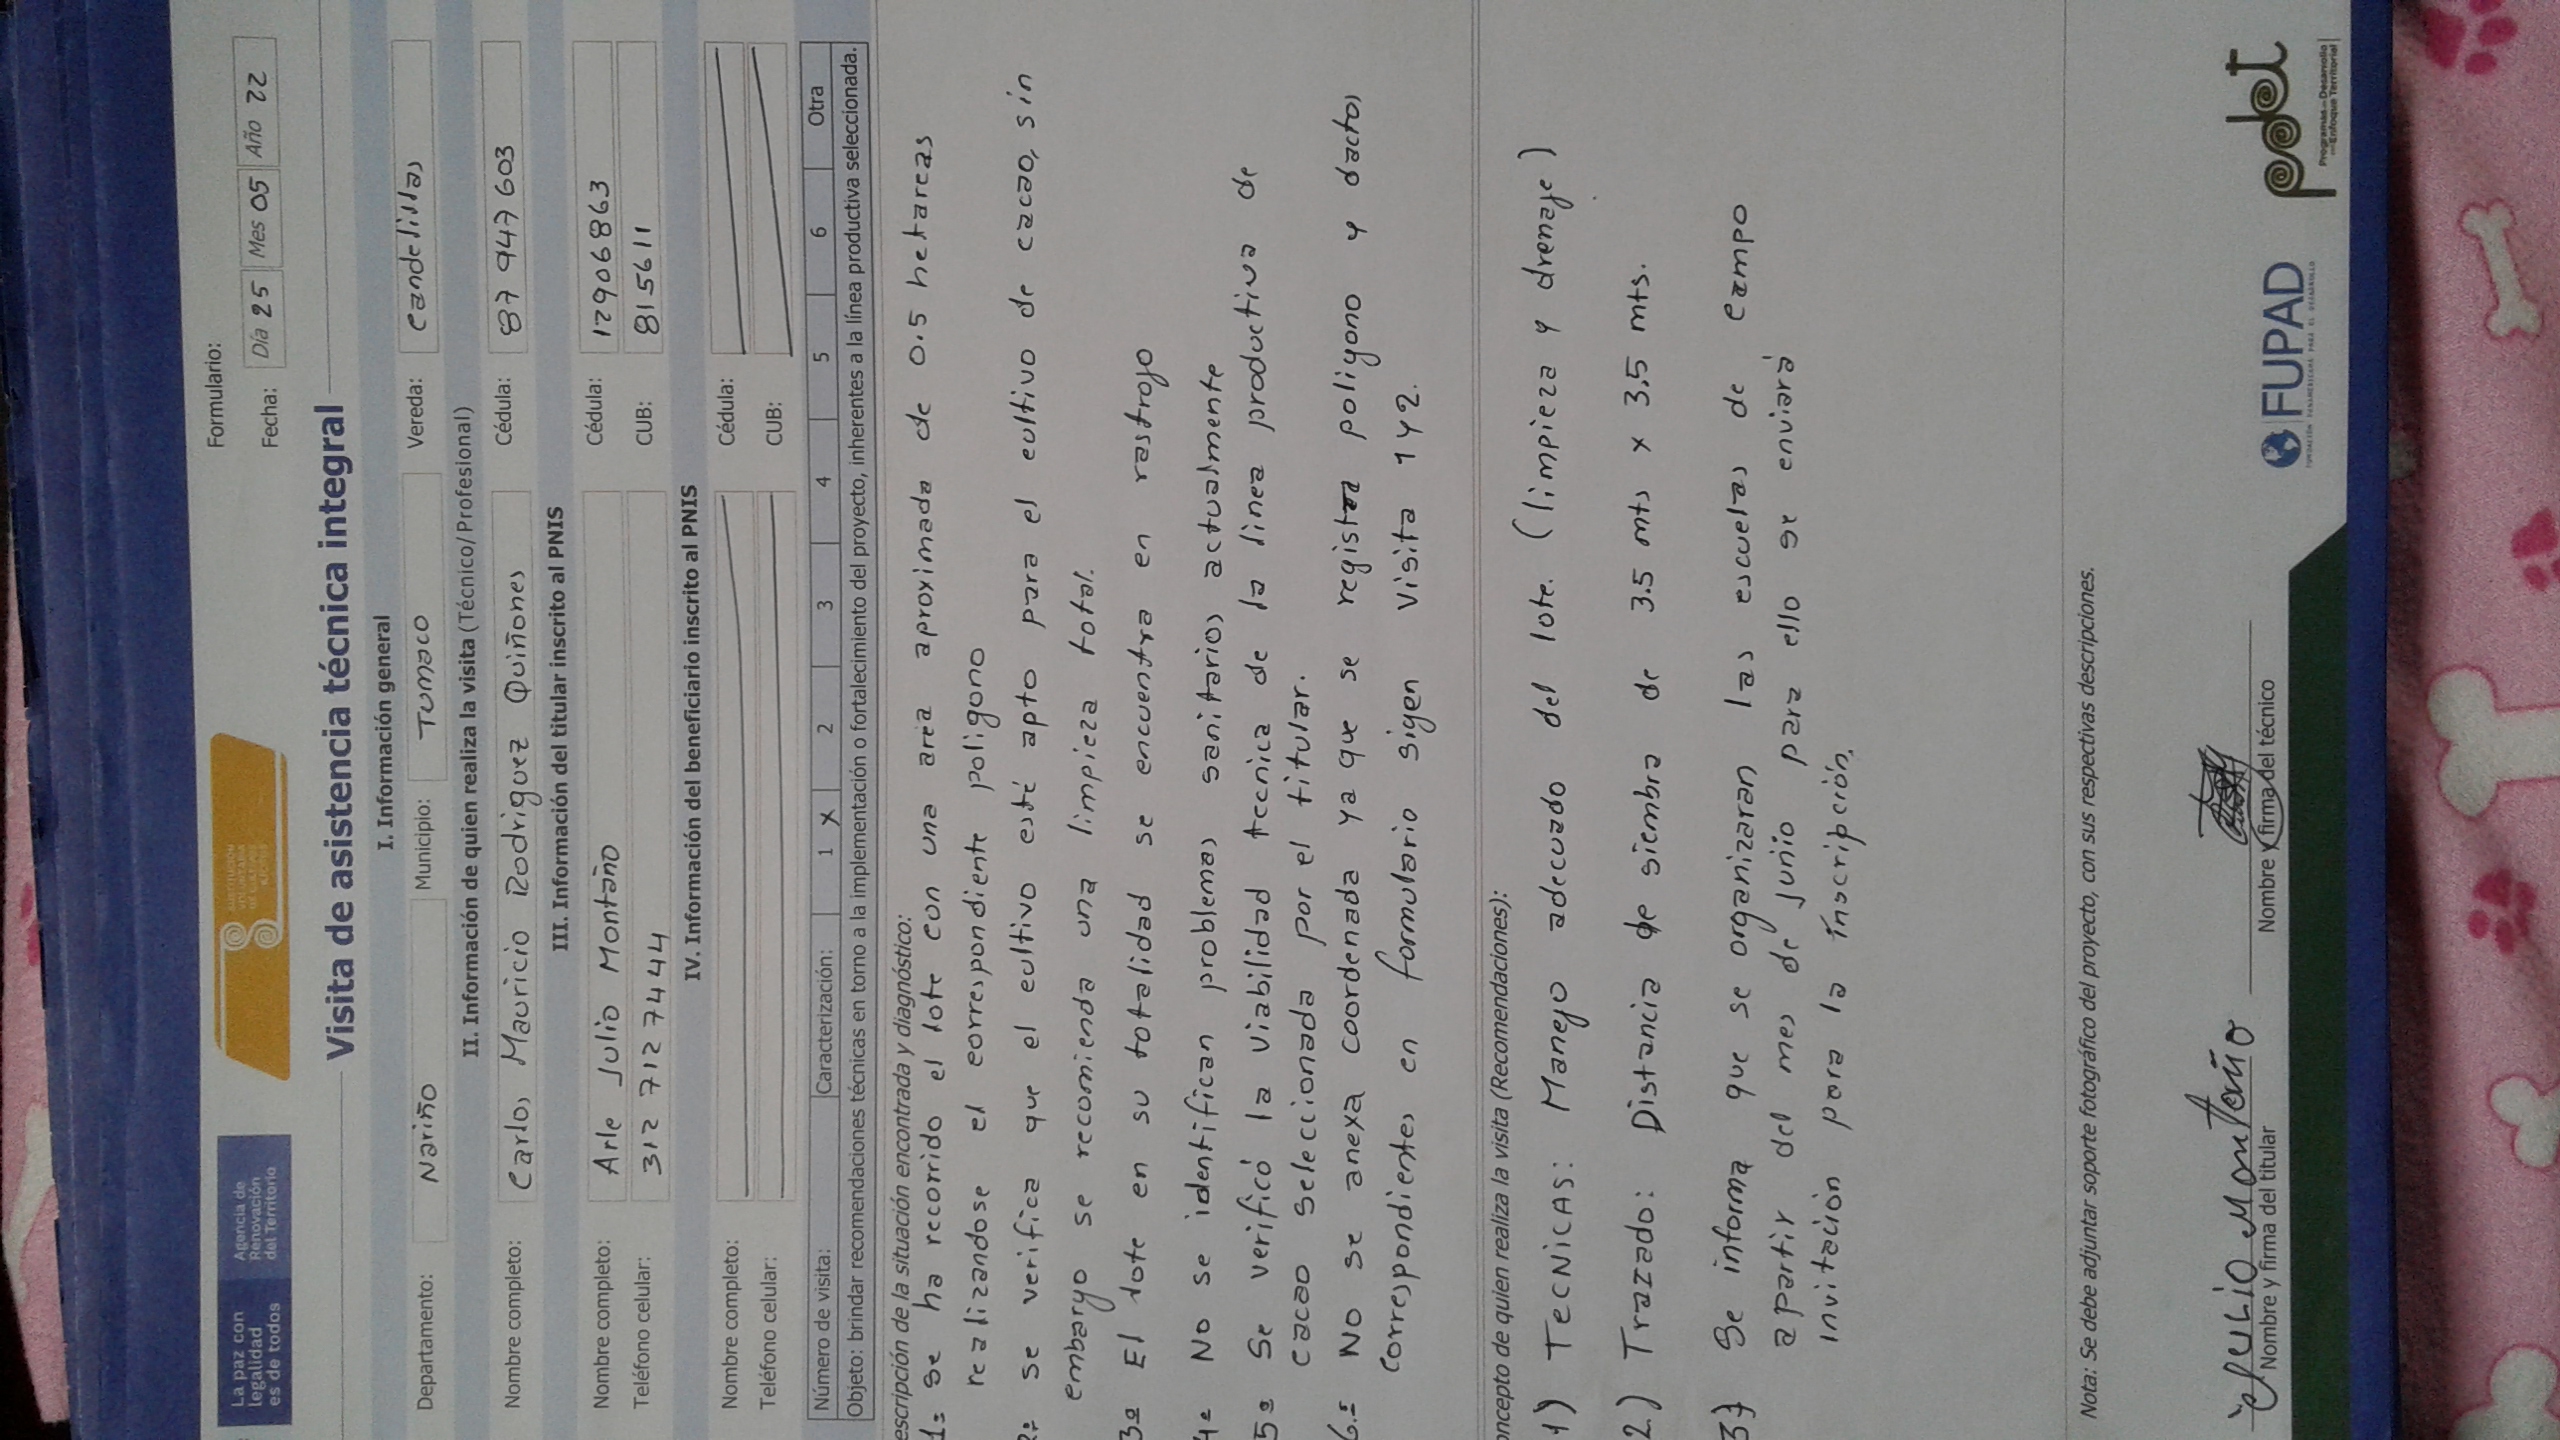 La paz con
legalidad
es de todos
Agencia de
Renovación
del Territorio
SUSTITUCIÓN
VOLUNTARIA
DE CULTIVOS
ILÍCITOS
Formulario:
Fecha: Día 25 Mes 05 Año 22
Visita de asistencia técnica integral
I. Información general
Departamento: Nariño Municipio: Tumaco Vereda: Candelillas
II. Información de quien realiza la visita (Técnico/Profesional)
Nombre completo: Carlos Mauricio Rodriguez Quiñones Cédula: 87 947 603
III. Información del titular inscrito al PNIS
Nombre completo: Arle Julio Montaño Cédula: 129068 63
Teléfono celular: 312 712 7444 CUB: 815611
IV. Información del beneficiario inscrito al PNIS
Nombre completo: Cédula:
Teléfono celular: CUB:
Número de visita: Caracterización: 1 X 2 3 4 5 6 Otra
Objeto: brindar recomendaciones técnicas en torno a la implementación o fortalecimiento del proyecto, inherentes a la línea productiva seleccionada.
escripción de la situación encontrada y diagnóstico:
1= se ha recorrido el lote con una area aproximada de 0.5 hetareas
realizandose el correspondiente poligono
2= se verifica que el cultivo esté apto para el cultivo de cacao, sin
embargo se recomienda una limpieza total.
3= El lote en su totalidad se encuentra en rastrojo
4= No se identifican problemas sanitarios actualmente
5= Se verificó la viabilidad tecnica de la linea productiva de
cacao seleccionada por el titular.
6.= No se anexa coordenada ya que se registra poligono y datos
correspondientes en formulario sigen visita 1 y 2.
oncepto de quien realiza la visita (Recomendaciones):
1) TecNicAS: Manejo adecuado del lote. (limpieza y drenaje)
2.) Trazado: Distancia de siembra de 3.5 mts x 3.5 mts.
3) Se informa que se organizaran las escuelas de campo
apartir del mes de junio para ello se enviará
invitación para la inscripción.
Nota: Se debe adjuntar soporte fotográfico del proyecto, con sus respectivas descripciones.
Julio Montaño
Nombre y firma del titular
Nombre y firma del técnico
FUPAD
FUNDACIÓN PANAMERICANA PARA EL DESARROLLO
pdet
Programas de Desarrollo
con Enfoque Territorial